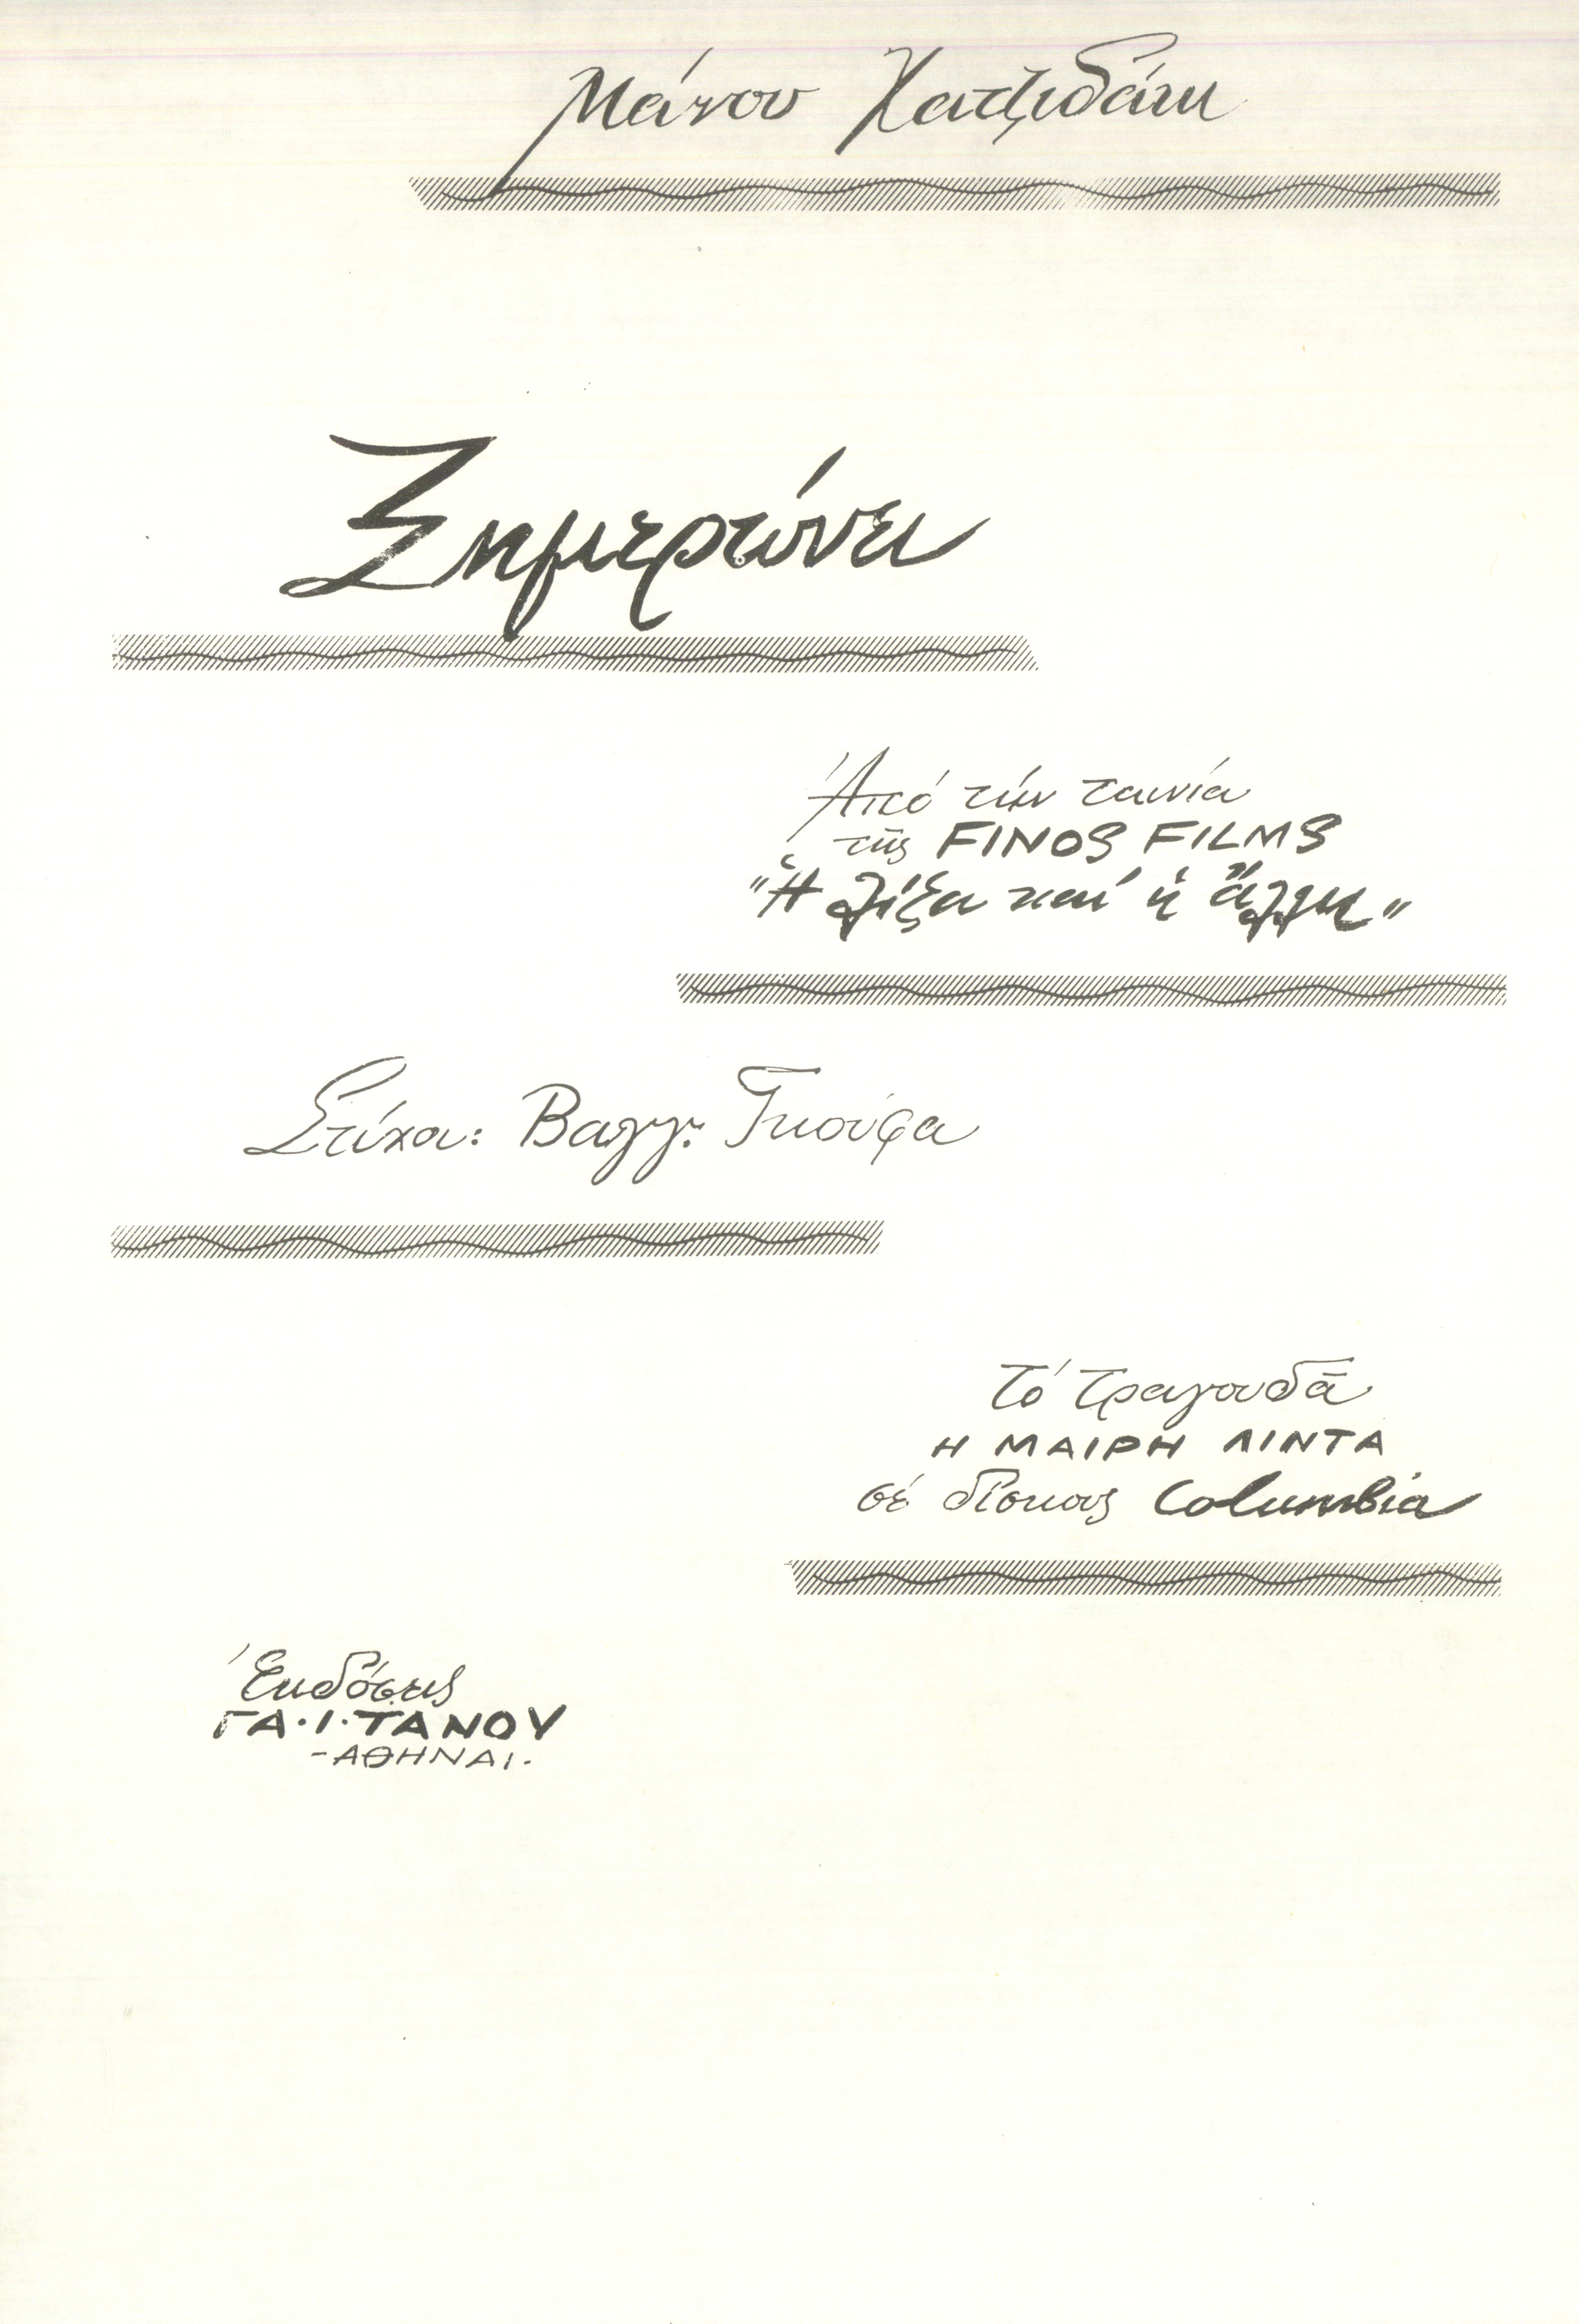 Μάνου Χατζιδάκη
Ξημερώνει
Ἀπό τήν ταινία
τῆς FINOS FILMS
"Ἡ Λίζα καί ἡ ἄλλη"
Στίχοι: Βαγγ. Γκούφα
Τό τραγουδᾶ
Η ΜΑΙΡΗ ΛΙΝΤΑ
σέ δίσκους Columbia
Ἐκδόσεις
ΓΑ·Ι·ΤΑΝΟΥ
-ΑΘΗΝΑΙ-